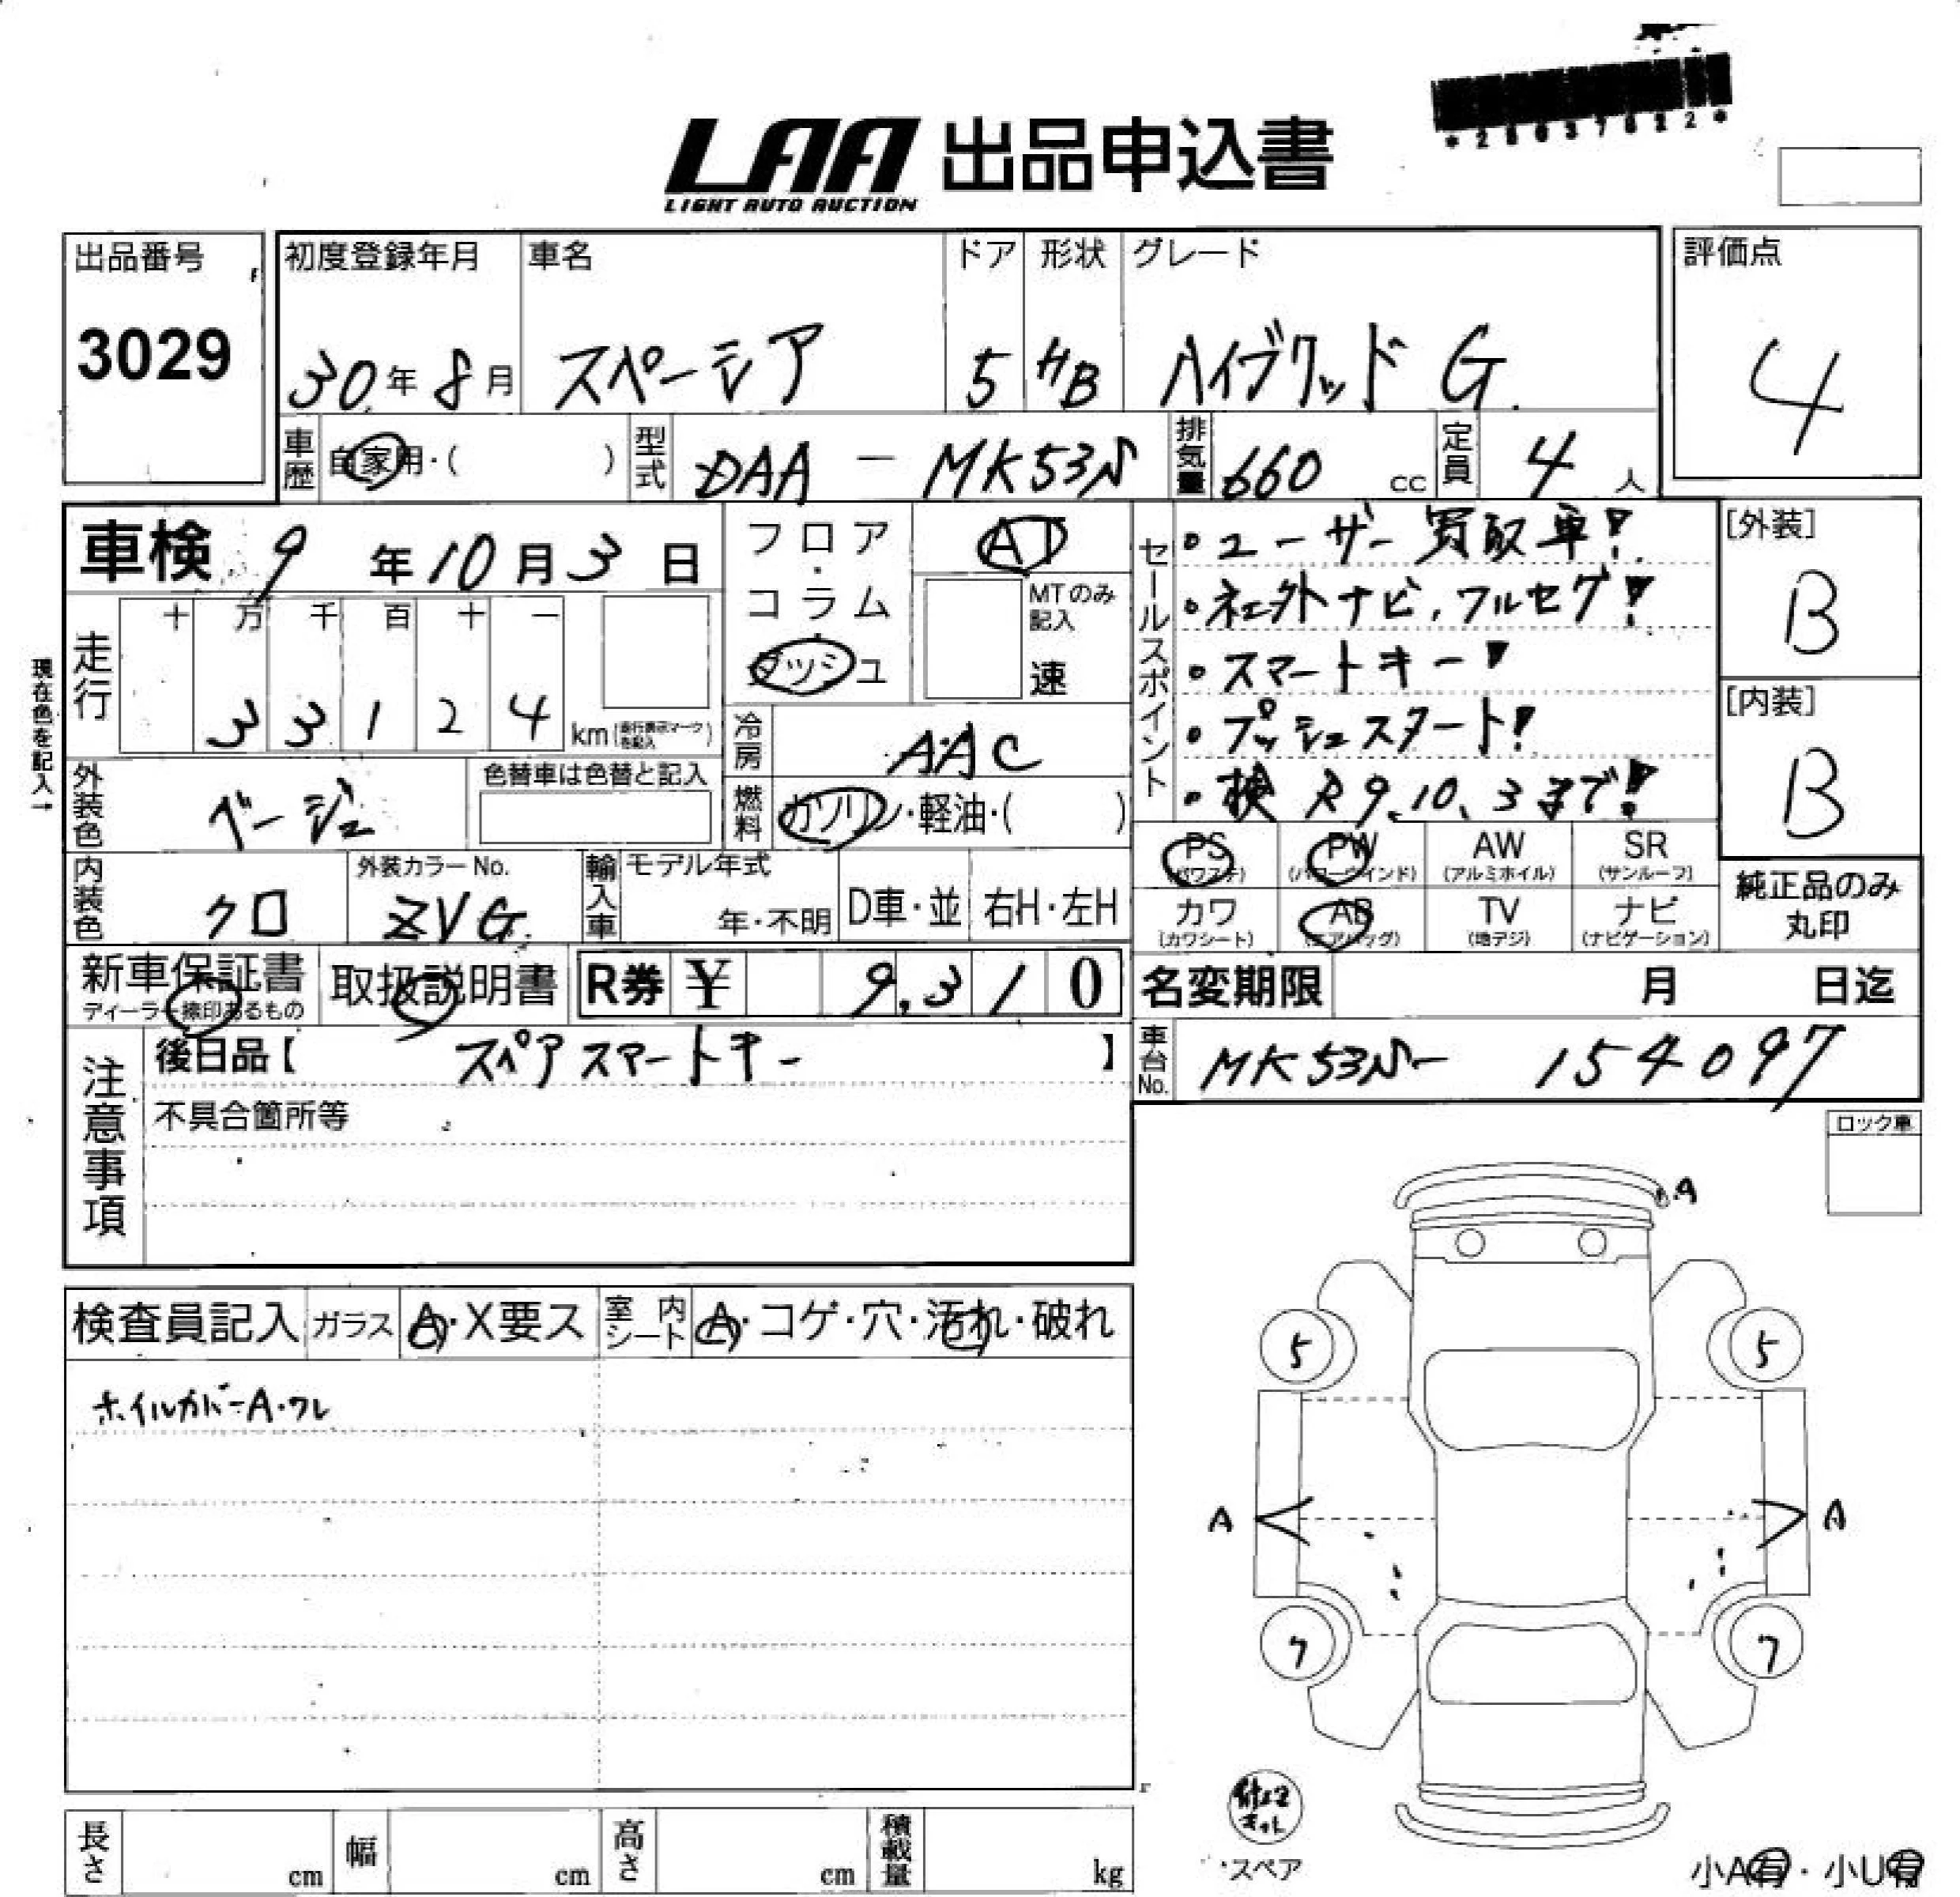 *28037822*
LAA 出品申込書
LIGHT AUTO AUCTION
出品番号
3029
初度登録年月
30年8月
車名
スペーシア
ドア
5
形状
HB
グレード
ハイブリッド G
評価点
4
車歴 自家用・( )
型式 DAA - MK53S
排気量 660 cc
定員 4 人
車検 9年10月3日
フロア・コラム・ダッシュ
AT
MTのみ記入
速
セールスポイント
・ユーザー買取車!
・社外ナビ、フルセグ!
・スマートキー!
・プッシュスタート!
・検R9.10.3まで!
[外装]
B
[内装]
B
現在色を記入→
走行
十 万 千 百 十 一
3 3 1 2 4 km (走行表示マークを記入)
冷房 AAC
燃料 ガソリン・軽油・( )
外装色 ベージュ
色替車は色替と記入
内装色 クロ
外装カラーNo.
ZVG
輸入車
モデル年式
年・不明
D車・並
右H・左H
PS (パワステ)
PW (パワーウインド)
AW (アルミホイル)
SR (サンルーフ)
カワ (カワシート)
AB (エアバッグ)
TV (地デジ)
ナビ (ナビゲーション)
純正品のみ丸印
新車保証書
ディーラー捺印あるもの
取扱説明書
R券 ¥ 9,310
名変期限 月 日迄
車台No. MK53S- 154097
注意事項
後日品【 スペアスマートキー 】
不具合箇所等
ロック車
検査員記入 ガラス A・X要ス 室内シート A・コゲ・穴・汚れ・破れ
ホイルカバーA・ワレ
A
5 5
A A
7 7
修理キット
スペア
小A有・小U有
長さ cm 幅 cm 高さ cm 積載量 kg